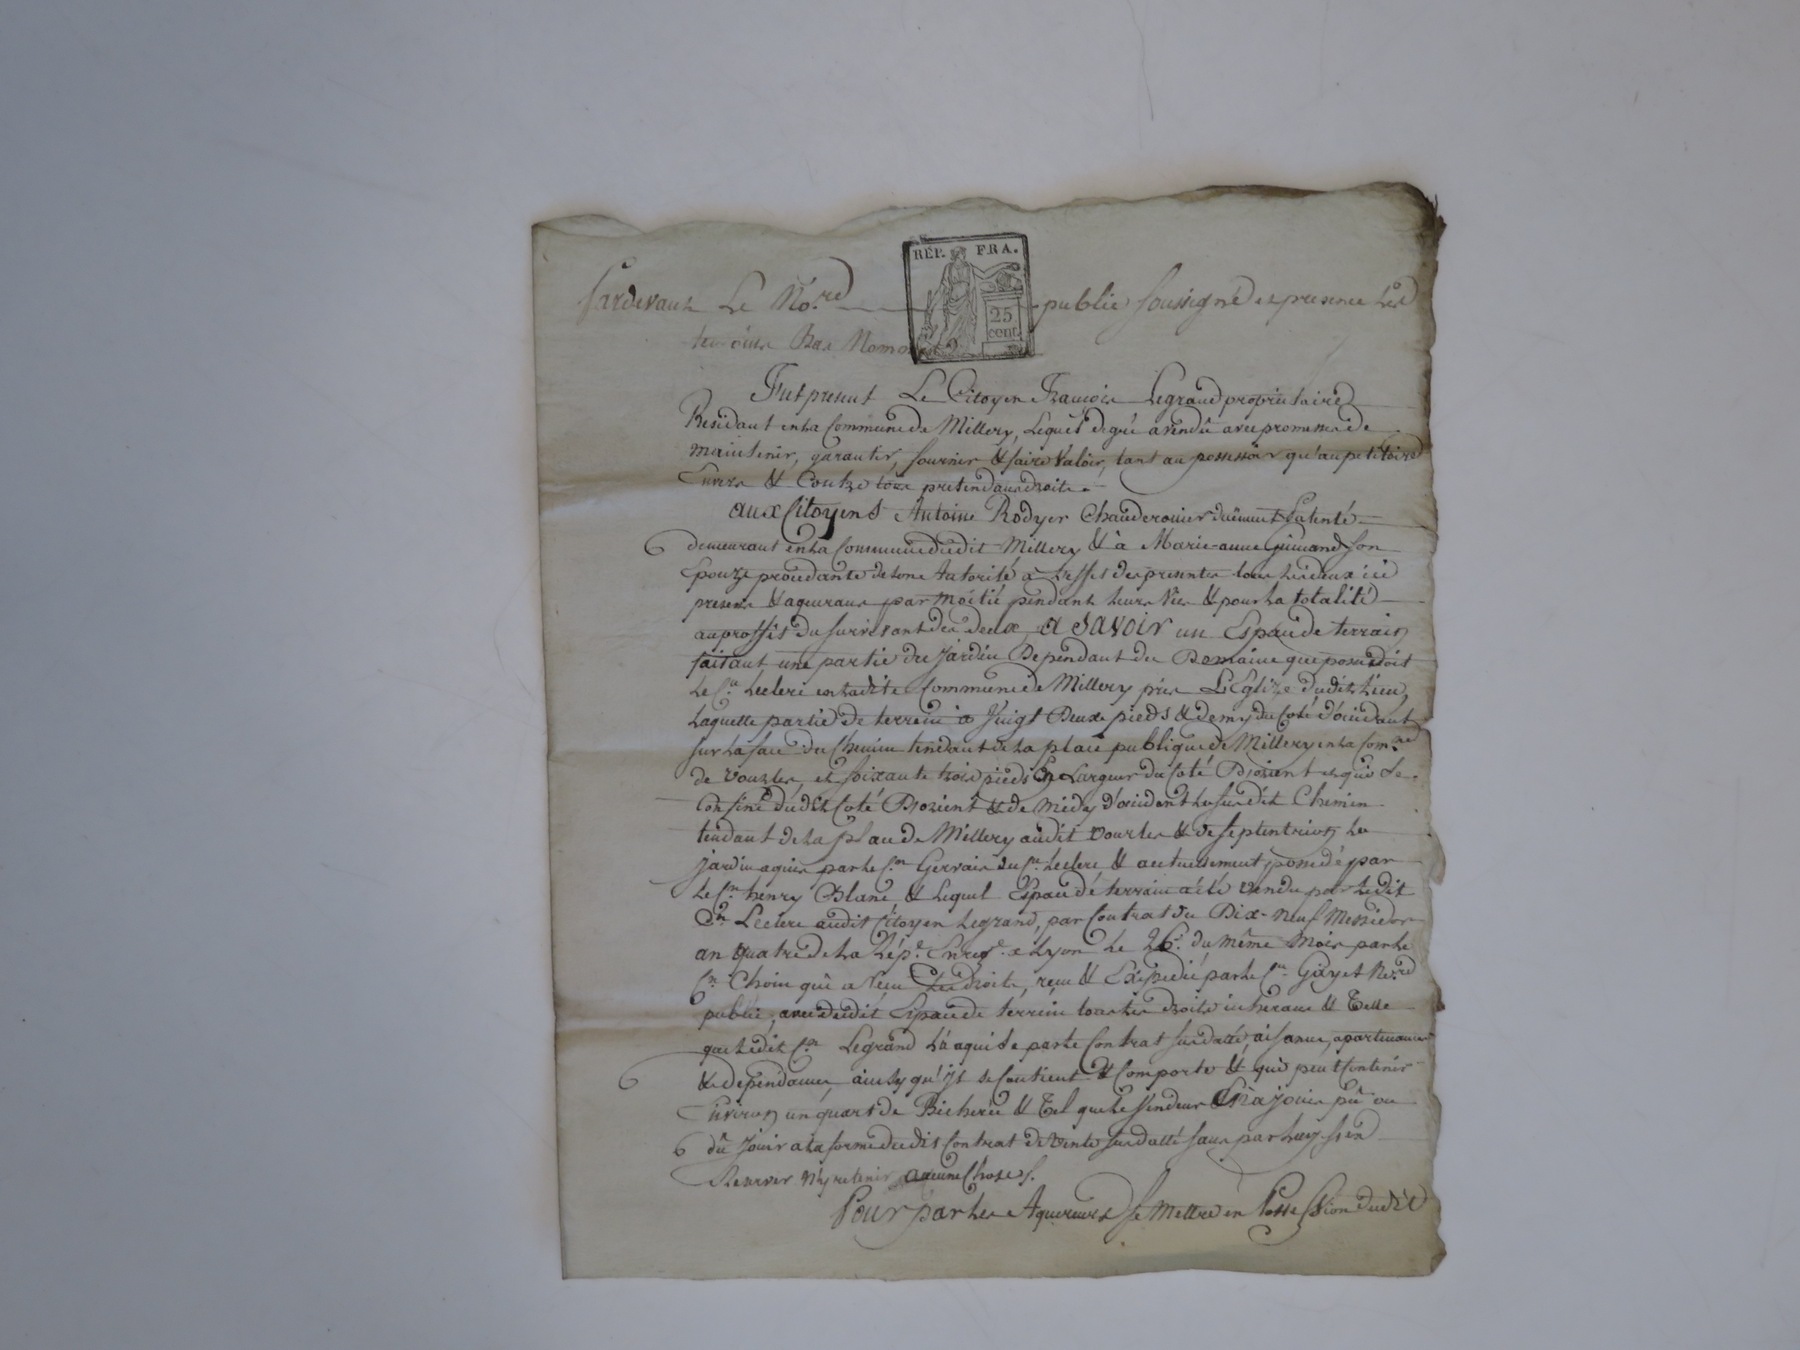 RÉP. FRA.
25
cent.
Pardevant Le No.re public soussigné et presence Des
temoins Bas Nommés
Fut present Le Citoyen François Legrand propriétaire
Residant en la Commune de Millery, Lequel de gré a vendû avec promesse de
maintenir, garantir, fournir & faire Valoir, tant au possessoir qu'au petitoire
Envers & Contre tous pretendans droits.
aux Citoyens Antoine Rodyer Chauderonier duëment Patenté
demeurant en la Commune dudit Millery & à Marie-anne Guinand son
Epouze procedante de son Autorité a L'effet des presentes tous les deux ici
presens & aqueraus par Moitié pendant leurs Vies & pour la totalité
au proffit du survivant des deux, a SAVOIR un Espace de terrain
faisant une partie du Jardin Dependant du Domaine que possedoit
Le C.n Leclerc en ladite Commune de Millery près L'Eglize dudit Lieu,
Laquelle partie de terrein a Vingt Deux pieds & demy du Coté d'occidant
sur La face du Chemin tendant de La place publique de Millery en La Com.ne
de Vourles, et soixante trois pieds de Largeur du Coté D'orient et qui se
Confine dudit Coté D'orient & de Midy d'occident Le susdit Chemin
tendant de La place de Millery audit Vourles & de septentrion Le
Jardin aquis par Le C.en Gervais du C.n Leclerc & actuellement possedé par
Le C.en henry Blanc & Lequel Espace de terrain a été vendu par Ledit
C.n Leclerc audit Citoyen Legrand, par Contrat du Dix-neuf Messidor
an quatre de La Rép.e Enreg.é a Lyon Le 26.e du même Mois par Le
C.n Choin qui a reçu Les droits, reçu & Expedié par Le C.en Gayet No.re
public, avec dudit Espace de terrein tous les droits inherans & Telle
que Ledit C.en Legrand L'a aquise par Le Contrat susdatté, aisances, apartenances
& dependances, ainsy qu'il se Contient & Comporte & qui peut Contenir
Environ un quart de Bicherée & Tel que Le Vendeur En a joui pû ou
dû Jouir a la forme dudit Contrat de Vente susdatté sans par Luy s'en
Reserver N'y retenir aucune Choses.
Pour par Les Aquereurs se Mettre en Possession dudit